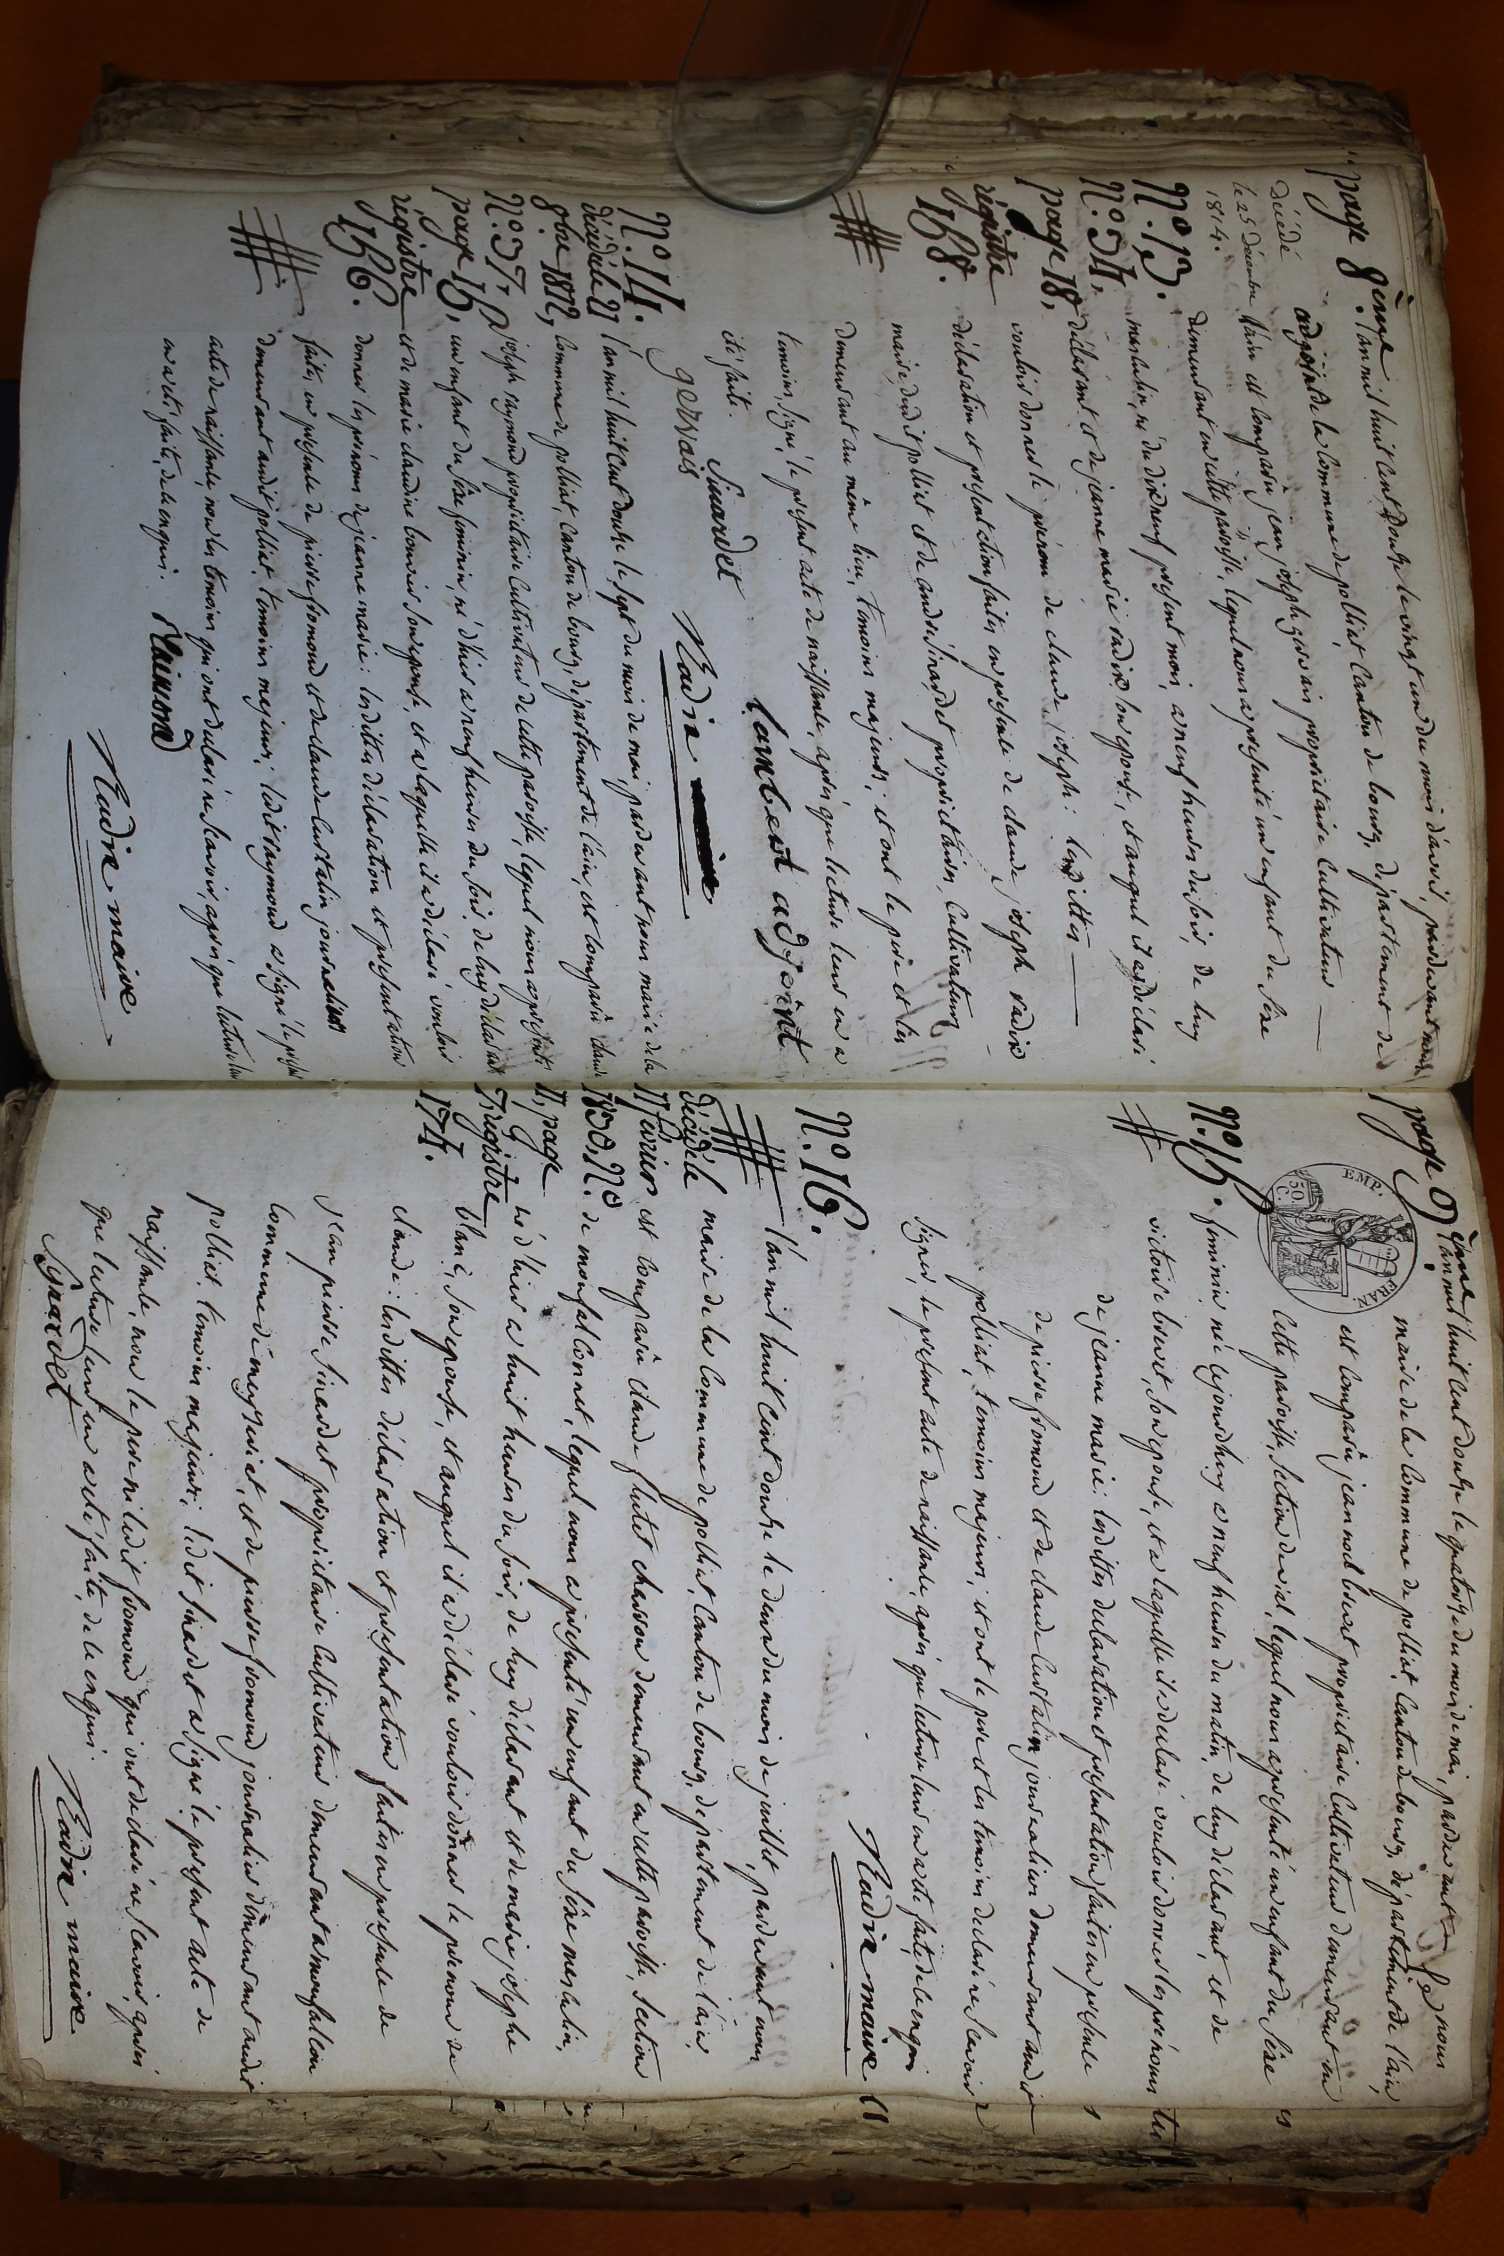 page 8ème
Décédé
le 25 Décembre
1814.
N.º 13.
N.º 34,
page 18,
régistre
168.
L'an mil huit cent douze le vingt un du mois d'avril, pardevant nous
adjoint de la Commune de polliat, Canton de bourg, département de
l'ain est comparu jean joseph gervais propriétaire Cultivateur
demeurant en cette paroisse, lequel nous a présenté un enfant du séxe
masculin, né du dixneuf présent mois, a neuf heures du soir, de luy
déclarant et de jeanne marie radix son epouse, et auquel il a déclaré
vouloir donner le prénom de claude joseph: lesdittes
déclaration et présentation faites en présence de claude joseph radix
maire dudit polliat et de andré sirardet propriétaires, Cultivateurs
demeurant au même lieu, temoins majeurs; et ont le père et les
temoins signé le présent acte de naissance, après que lecture leur en a
été faite.
Sirardet
Lambert adjoint
gervais
Radix
N.º 14.
décédée le 27
8bre 1872,
N.º 37,
page 15,
régistre
166.
L'an mil huit Cent douze le sept du mois de mai, pardevant nous maire de la
Commune de polliat, Canton de bourg, département de l'ain, est comparu claude
joseph raymond propriétaire Cultivateur de cette paroisse, lequel nous a présenté
un enfant du séxe feminin, né d'hier a neuf heures du soir, de luy déclarant
et de marie claudine bouvier son epouse, et a laquelle il a déclaré vouloir
donner les prénoms de jeanne marie: lesdittes déclaration et présentation
faites en présence de pierre fromond et de claude Curtalin journaliers
demeurant audit polliat, temoins majeurs; ledit raymond a signé le présent
acte de naissance, non les temoins qui ont déclaré ne scavoir, après que lecture leur
en a été faite, de ce enquis.
Raimond
Radix maire
page 9ème
EMP. FRANÇ.
50. C.
N.º 15.
L'an mil huit cent douze le quatorze du mois de mai, pardevant nous
maire de la Commune de polliat, Canton de bourg, département de l'ain,
est comparu jean noel bievet propriétaire Cultivateur demeurant en
Cette paroisse, section de vial, lequel nous a présenté un enfant du séxe
feminin né cejourdhuy a neuf heures du matin, de luy déclarant, et de
victoire brevet, son epouse, et a laquelle il a déclaré vouloir donner les prénoms
de jeanne marie: lesdittes déclaration et présentation faites en présence
de pierre fromond et de claude Curtalin journaliers demeurant audit
polliat, temoins majeurs; et ont le père et les temoins déclaré ne scavoir
signer, le présent acte de naissance, après que lecture leur en a été faite, de ce enquis
Radix maire
N.º 16.
décédé le
11 février
1830, N.º
11, page
7, régistre
174.
L'an mil huit Cent douze le deux du mois de juillet, pardevant nous
maire de la Commune de polliat, Canton de bourg, département de l'ain
est comparu claude chasson demeurant en cette paroisse, section
de monfalconnet, lequel nous a présenté un enfant du séxe masculin,
né d'hier a huit heures du soir, de luy déclarant et de marie josephe
blanc, son epouse, et auquel il a déclaré vouloir donner le prénom de
claude: lesdittes déclaration et présentation faites en présence de
jean pierre sirardet propriétaire Cultivateur demeurant a monfalcon
Commune de mezeriat, et de pierre fromond journalier demeurant audit
polliat, temoins majeurs; ledit sirardet a signé le présent acte de
naissance, non le père ni ledit fromond qui ont déclaré ne scavoir, après
que lecture leur en a été faite, de ce enquis.
Sirardet
Radix maire